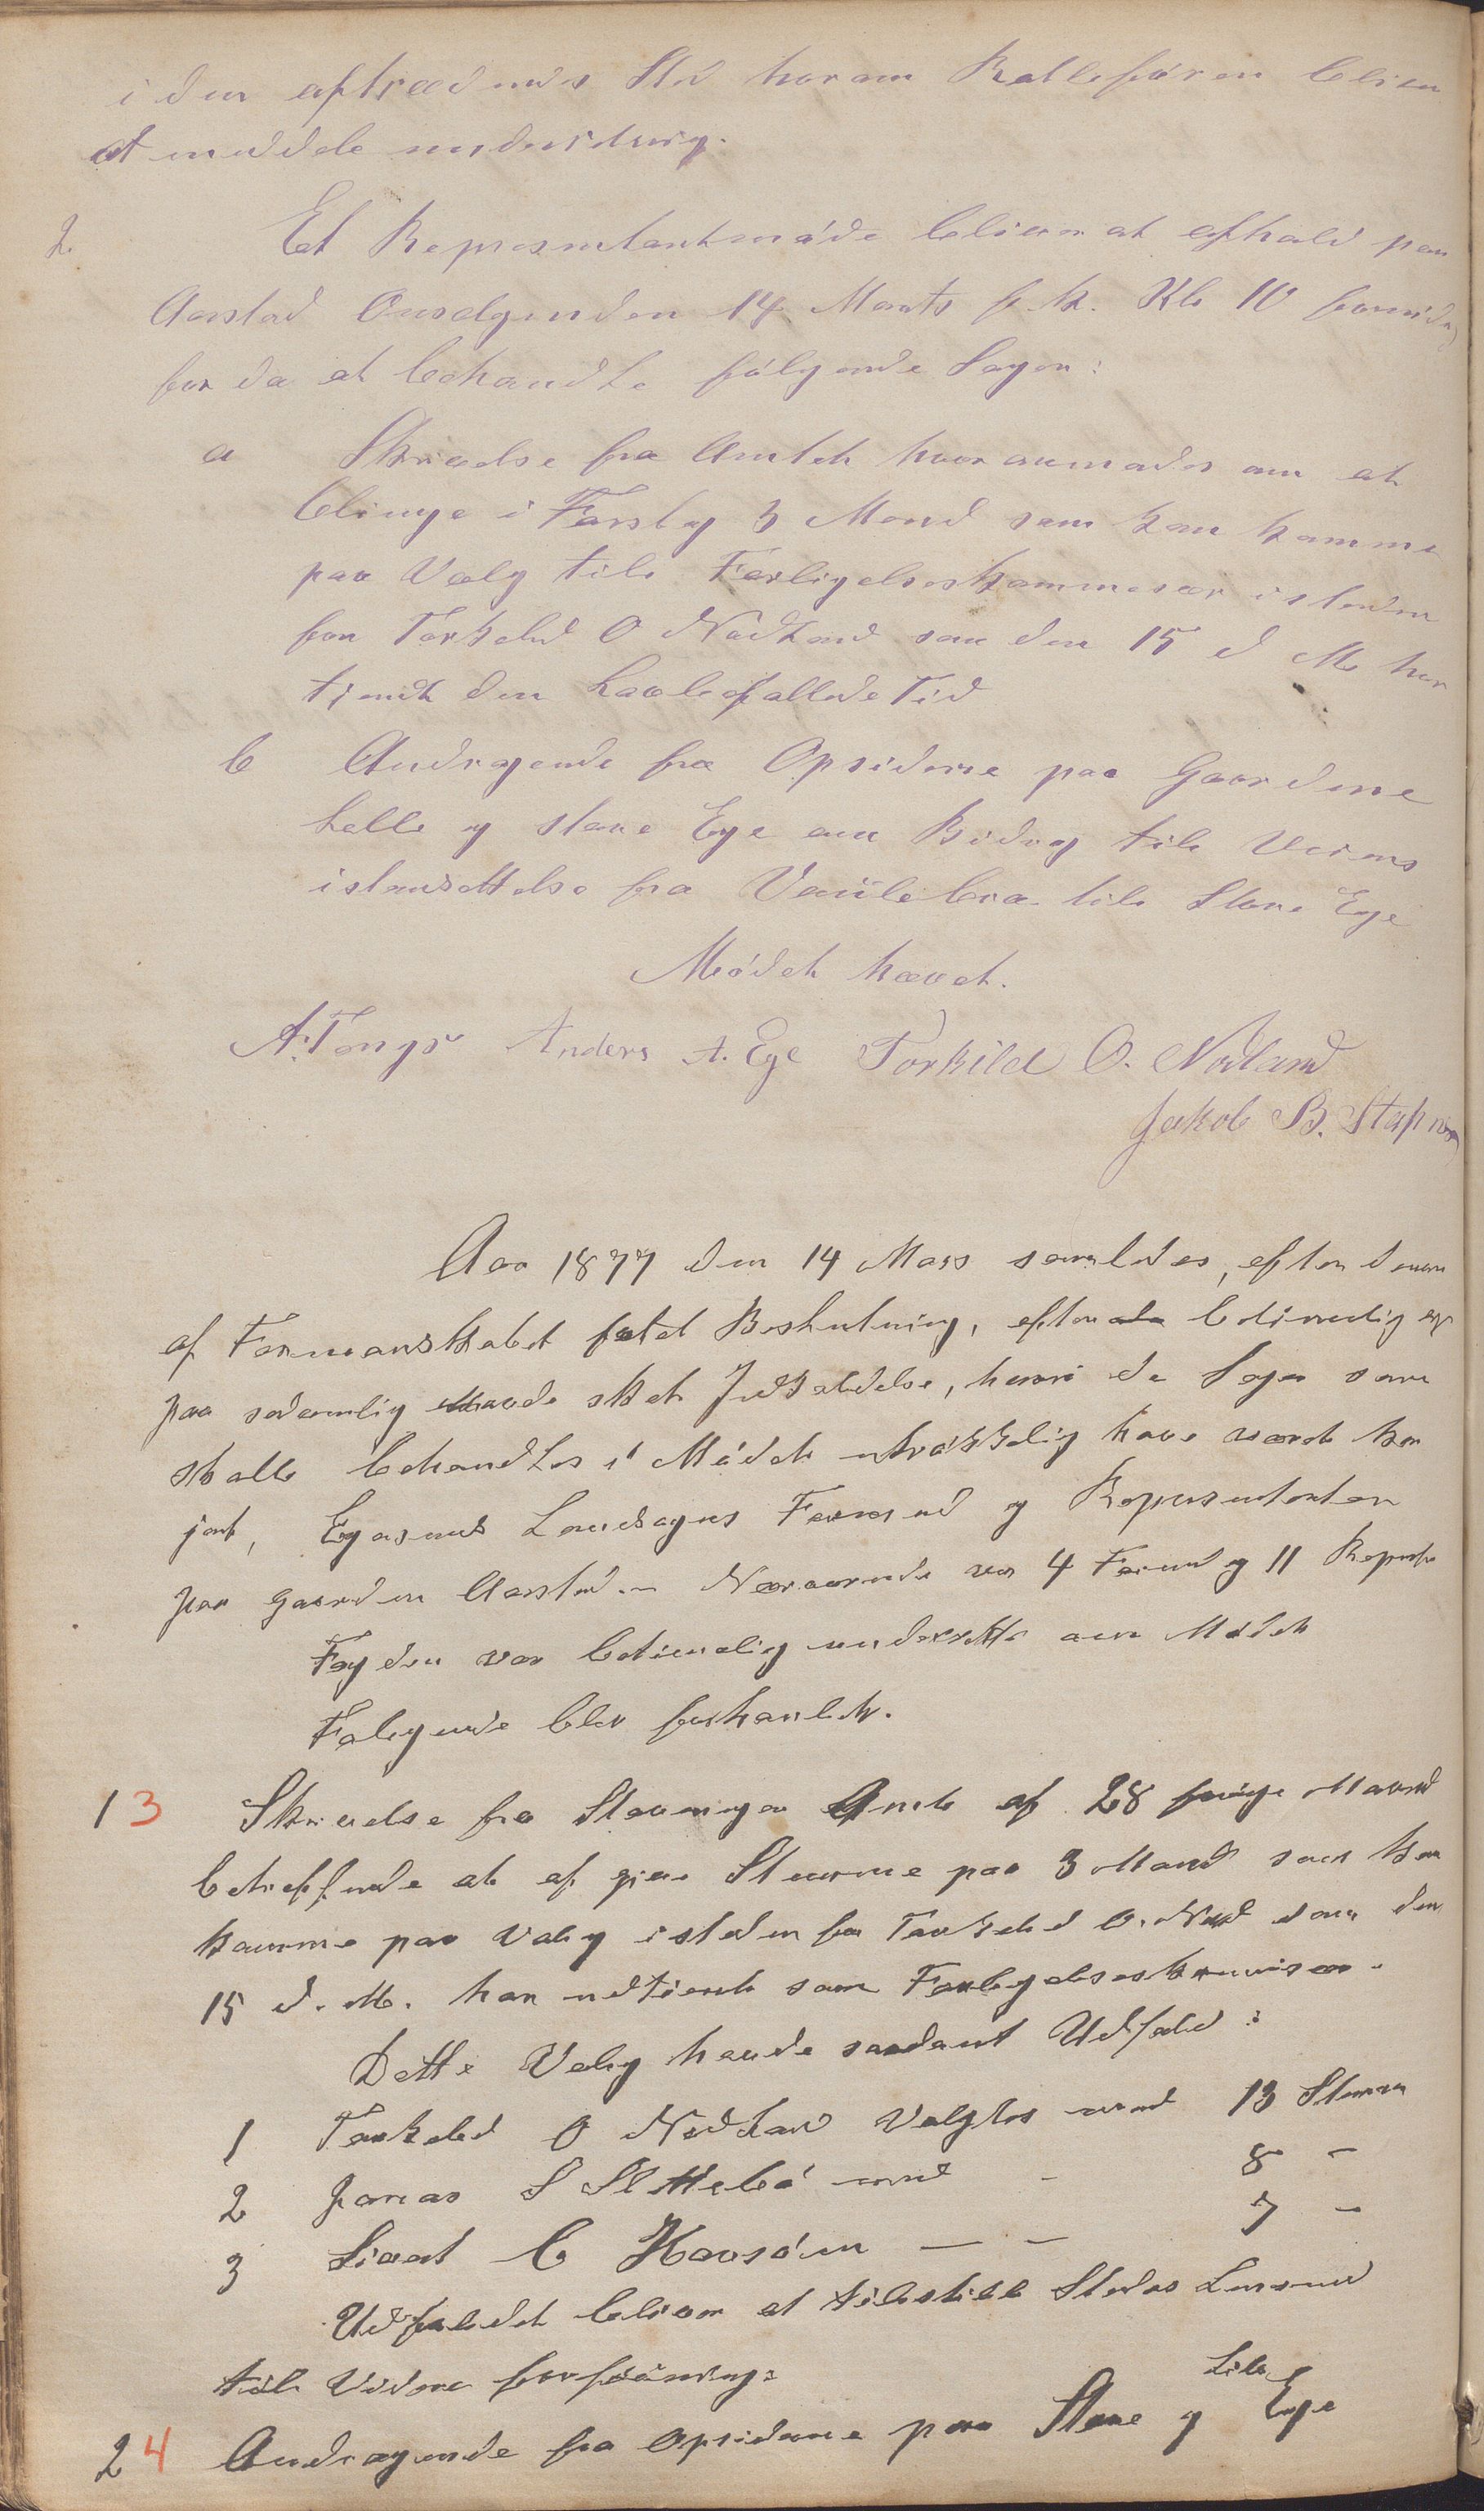 i den aftrædendes Sted hvorom Rettefören bliver
at meddele underretning.
2 Et Repræsentantmöde bliver at afhold paa
Aarstad Onsdagenden 14 Marts f. k. Kl 10 formidag
for da at behandle fölgende Sager:
a Skrivelse fra Amtet hvor anmodes om at
bringe i Forslag 3 Mænd som kan komme
paa Valg til Forligelseskommesær isteden
for Torkeld O Nodland som den 15 d M har
tjendt den Lovbefallede Tid
b Andragende fra Opsiderne paa Gaardene
Lille og Store Ege om Bidrag til Veiens
istandsettelse fra Vaule bro til Store Ege
Mödet hævet.
A. Tengs Anders A. Ege Torkild O. Nodland
Jakob B. Stapnes
Aar 1877 den 14 Mars samledes, efter denn
af Formanskabet fatet Beslutning, efter betimelig og
paa sedvanlig Maade sket Indkaldelse, hvori de Sager som
skulle behandles i Mödet utrökkelig have været kun
jort, Egersunds Landsogns Formend og Representanter
paa Gaarden Aarstad. Nærværende var 4 Formd og 11 Repræs
Fogden var betimelig underrettet om Mödet
Folgende blev forhanlet.
1 3 Skrivelse fra Stavanger Amt af 28 forige Maaned
betreffende at af give Stemme paa 3 Mand som kan
komme paa Valg isteden for Torkeld O. Nodld som den
15 d. M. har udtient som Forligelseskommisær.
Dette Valg havde saadant Udfald:
1 Torkeld O Nodland Valgtes med 13 Stemer
2 Jonas S Slettebö med - 8 -
3 Sivert C Hovsöen - - 7 -
Udfaldet bliver at tilstille Stedes Lensmd
til Videre forföining:
2 4 Andragende fra Opsidere paa Store og Lile Ege